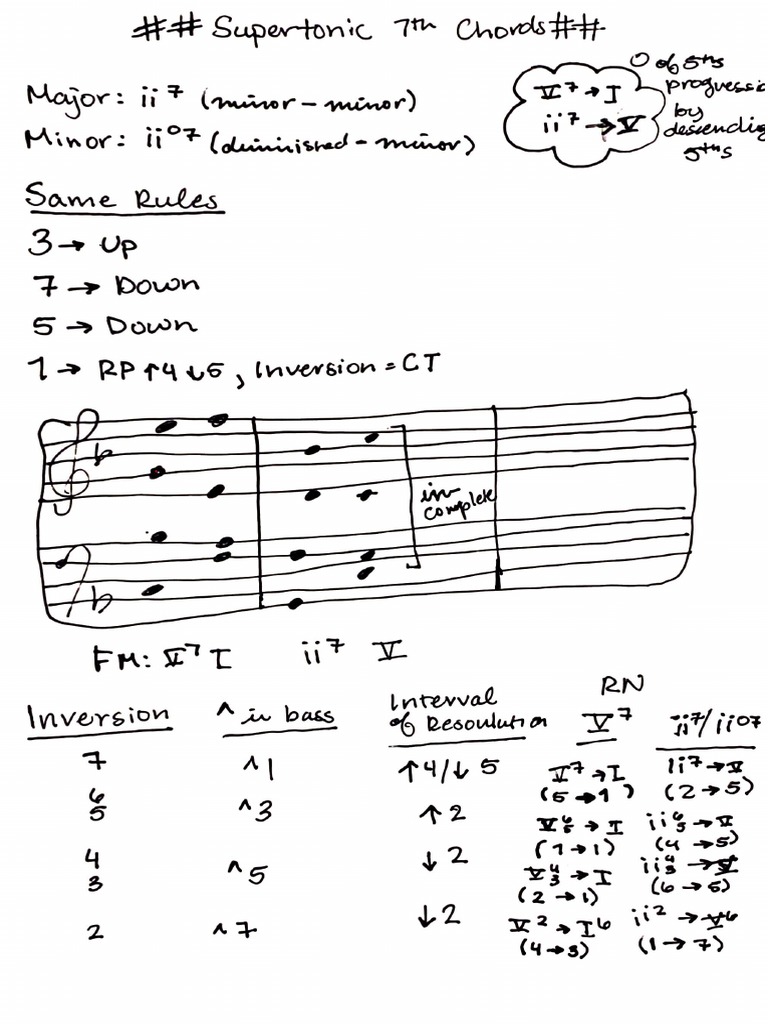 ## Supertonic 7th Chords ##
Major: ii7 (minor-minor)
Minor: iiø7 (diminished-minor)
V7 → I
ii7 → V
O of 5ths
progressi
by
descending
5ths
Same Rules
3 → Up
7 → Down
5 → Down
1 → RP ↑4 ↓5, Inversion = CT
b
b
in-
complete
FM: V7 I ii7 V
Inversion
^ in bass
Interval
of Resoulution
RN
V7
ii7/iiø7
7 ^1 ↑4/↓5 V7 → I ii7 → V
(5 → 1) (2 → 5)
6
5 ^3 ↑2 V6/5 → I ii6/5 → V
(7 → 1) (4 → 5)
4
3 ^5 ↓2 V4/3 → I ii4/3 → V
(2 → 1) (6 → 5)
2 ^7 ↓2 V2 → I6 ii2 → V6
(4 → 3) (1 → 7)